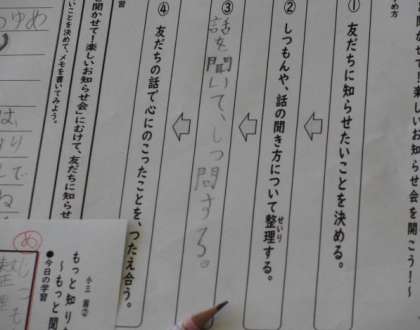 て！楽しいお知らせ会を開こう！～
め方
① 友だちに知らせたいことを決める。
② しつもんや、話の聞き方について整理する。
せいり
③
話を聞いて、しつ問する。
④ 友だちの話で心にのこったことを、つたえ合う。
習
聞かせて！楽しいお知らせ会」にむけて、友だちに知らせ
いことを決めて、メモを書いてみよう。
つゆめ
め
小三 国②
もっと知り
～もっと聞
●今日の学習